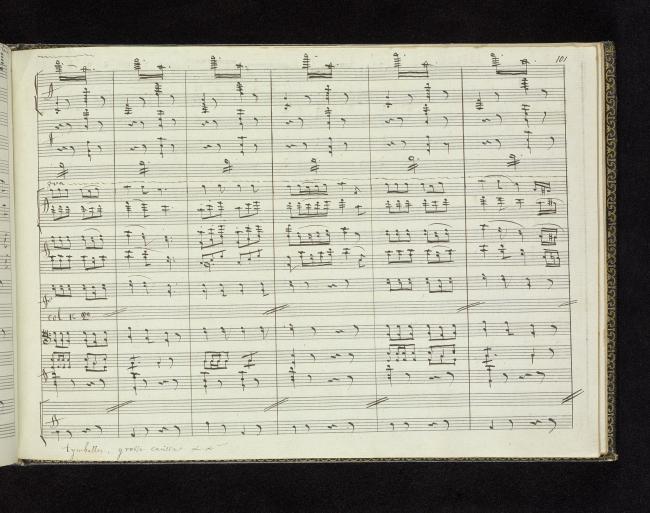 101
8va
col 1º
Cymballes, grosse caisse